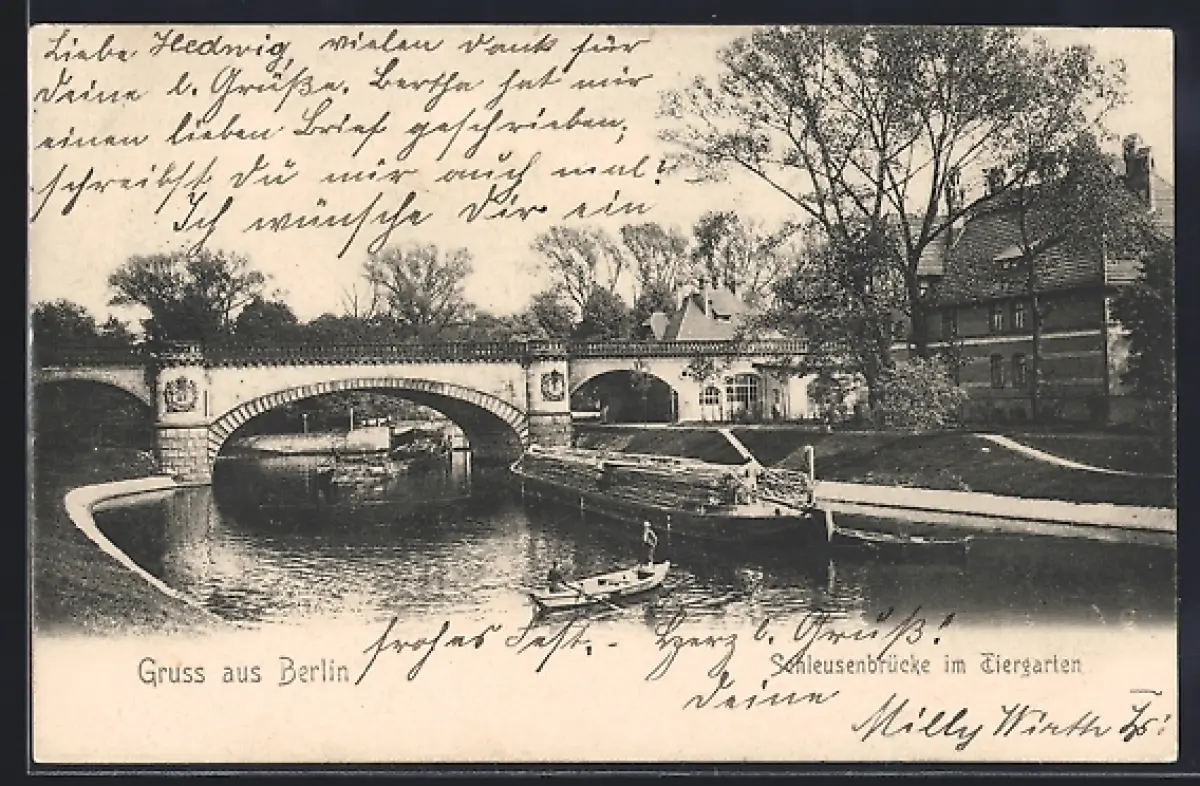 Liebe Hedwig, vielen Dank für
Deine l. Grüße. Bertha hat mir
einen lieben Brief geschrieben;
schreibst Du mir auch mal?
Ich wünsche Dir ein
frohes Fest. - Herzl. Gruß!
Gruss aus Berlin
Schleusenbrücke im Tiergarten
Deine
Milly Wirth